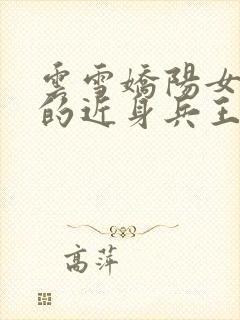 雲雪嬌陽女
的近身兵王
高萍